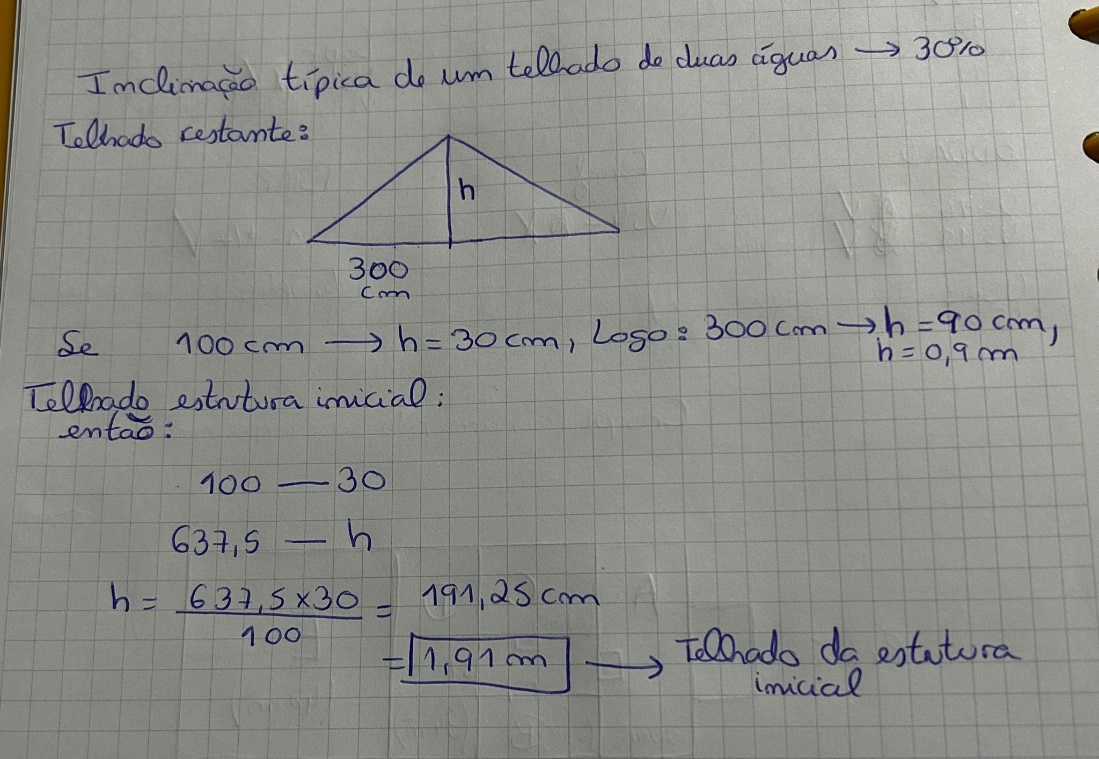 Inclinação típica de um telhado de duas águas → 30%
Telhado restante:
h
300
cm
Se 100 cm → h = 30 cm, Logo: 300 cm → h = 90 cm,
h = 0,9 m
Telhado estrutura inicial:
então:
100 — 30
637,5 — h
h = 637,5 x 30 = 191,25 cm
100
= 1,91 m → Telhado da estrutura
inicial